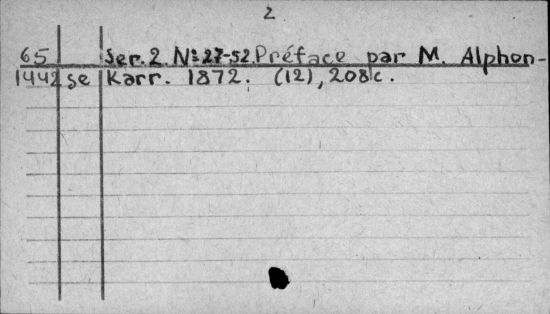 2
65 Ser. 2. №27-52. Préface par M. Alphon-
1442 se Karr. 1872. (12), 208 c.